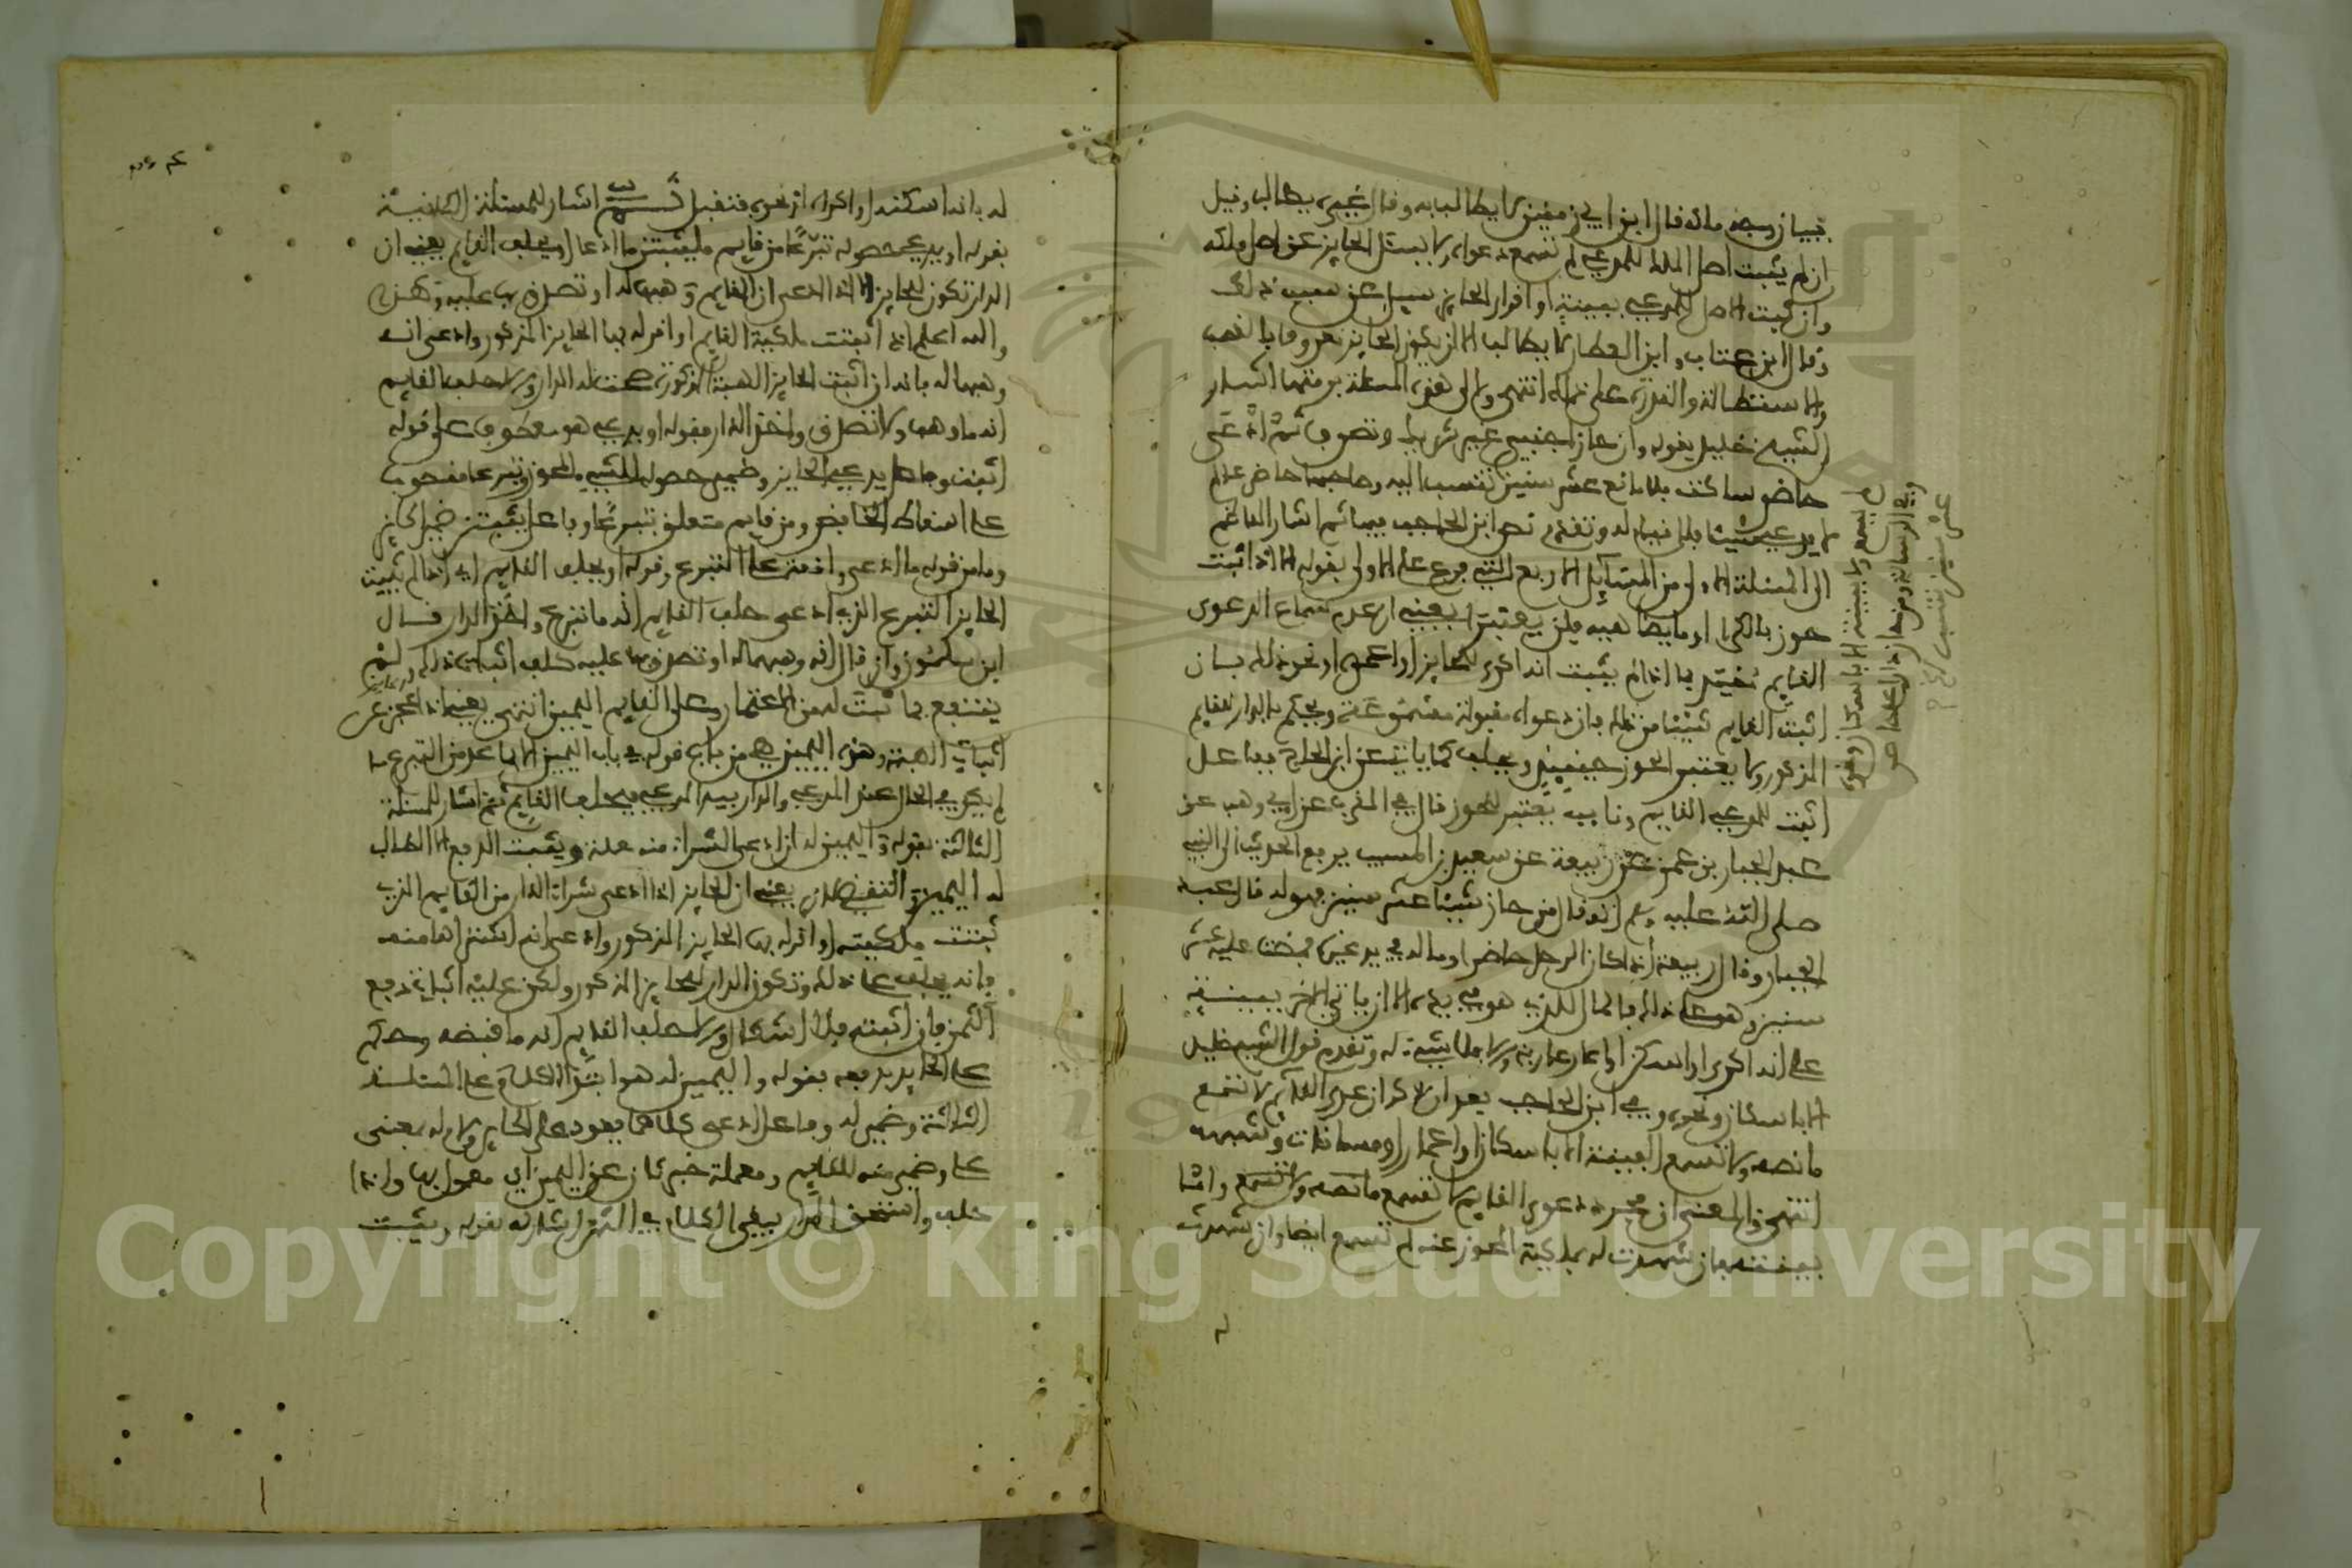 ببيان وجه ملكه فقال ابن ابي زمنين لا يطالب به وقال غيره يطالب وقيل
ان لم يثبت اصل الملك للمدعي لم تسمع دعواه ولا يسئل الحايز عن اصل ملكه
وان ثبت الاصل للمدعي ببينة او اقرار الحايز سيل عن سبب ذلك
وقال ابن عتاب وابن القطان لا يطالب الا ان يكون الحايز معروفا بالغصب
والاستطالة والقدرة على ذلك انتهى والى هذه المسئلة برمتها اشار
الشيخ خليل بقوله وان حاز اجنبي غير شريك وتصرف ثم ادعى
حاضر ساكت بلا مانع عشر سنين تنسب اليه وصاحبها حاضر عالم
لا يدعي شيئا فلا قيام له وتقدم نص ابن الحاجب فيها ثم اشار الناظم
الى المسئلة الاولى من المسايل الاربع التي فرع على الاولى بقوله الا اذا اثبت
حوز بالكرا او ما يضاهيه فلن يعتبرا يعني ان عدم سماع الدعوى
القايم مقيد بما اذا لم يثبت انه اكرى للحايز او اعمر او نحو ذلك فان
اثبت القايم شيئا من ذلك فان دعواه مقبولة مسموعة ويحكم بالدار للقايم
المذكور ولا يعتبر الحوز حينئذ ويحلف كما ياتي عن ابن الحاج ففاعل
اثبت للمدعي القايم ونايب يعتبر للحوز قال في المقرب عن ابن وهب عن
عبد الجبار بن عمر عن ربيعة عن سعيد بن المسيب يرفع الحديث الى النبي
صلى الله عليه وسلم انه قال من حاز شيئا عشر سنين فهو له قال عبد
الجبار وقال ربيعة اذا كان الرجل حاضرا وماله في يد غيره فمضت عليه عشر
سنين وهو على ذلك فالمال للذي هو في يده الا ان ياتي الاخر ببينة
على انه اكرى او اسكن او اعار عارية والا فلا شيء له وتقدم قول الشيخ خليل
الا باسكان ونحوه وفي ابن الحاجب بعد ان ذكر ان دعوى القايم لا تسمع
ما نصه ولا تسمع البينة الا باسكان او اعمار او مساقات وشبهه
انتهى والمعنى ان مجرد دعوى القايم لا تسمع ما نصه ولا تسمع واما
بينته فان شهدت له بملكية المحوز عنه لم تسمع ايضا وان شهدت
له بانه اسكنه او اكراه او نحوه فتقبل تنبيه اشار للمسئلة الثانية
بقوله او يدعي حصوله تبرعا من قايم فليثبتن ما ادعا او يحلف القايم يعني ان
الدار تكون للحايز اذا ادعى ان القايم وهبها له او تصدق بها عليه وهكذا
والله اعلم اذا اثبتت ملكية القايم او اقر له بها الحايز المذكور وادعى انه
وهبها له فانه ان اثبت الحايز الهبة المذكورة صحت له الدار والا حلف القايم
انه ما وهب ولا تصدق واخذ الدار فقوله او يدعي هو معطوف على قوله
اثبت وفاعل يدعي الحايز وضمير حصوله للشيء المحوز وتبرعا منصوب
على اسقاط الخافض ومن قايم متعلق بتبرعا وفاعل يثبتن ضمير الحايز
وما من قوله ما ادعى واقعة على التبرع وقوله او يحلف القايم اي اذا لم يثبت
الحايز التبرع الذي ادعى حلف القايم انه ما تبرع واخذ الدار قال
ابن سلمون وان قال انه وهبها له او تصدق بها عليه كلف اثبات ذلك ولم
ينتفع بما ثبت له من الاعتمار وعلى القايم اليمين انتهى يعني اذا عجز عن
اثبات الهبة وهذه اليمين هي من باب قوله في باب اليمين الا بما عد من التبرع ما
لم يكن في الحال عند المدعي والدار بيد المدعي فيحلف القايم ثم اشار للمسئلة
الثالثة بقوله واليمين له ان ادعى الشراء منه معملة ويثبت الدفع والا الطالب
له اليمين والتقضي لازب يعني ان الحايز اذا ادعى شراء الدار من القايم الذي
ثبتت ملكيته او اقر له بها الحايز المذكور وادعى انه اشتراها منه
فانه يحلف على ذلك وتكون الدار للحايز المذكور ولكن عليه اثبات دفع
الثمن فان اثبته فلا اشكال والا حلف القايم انه ما قبضه وحكم
على الحايز بدفعه بقوله واليمين له هو ابتداء الكلام على المسئلة
الثالثة وضمير له وفاعل ادعى كلاهما يعود على الحايز ولام له بمعنى
على وضمير منه للقايم ومعملة خبر كان عن اليمين اي معمول بها واذا
حلف واستحق الدار بيقي الكلام في الثمن اشار له بقوله ويثبت